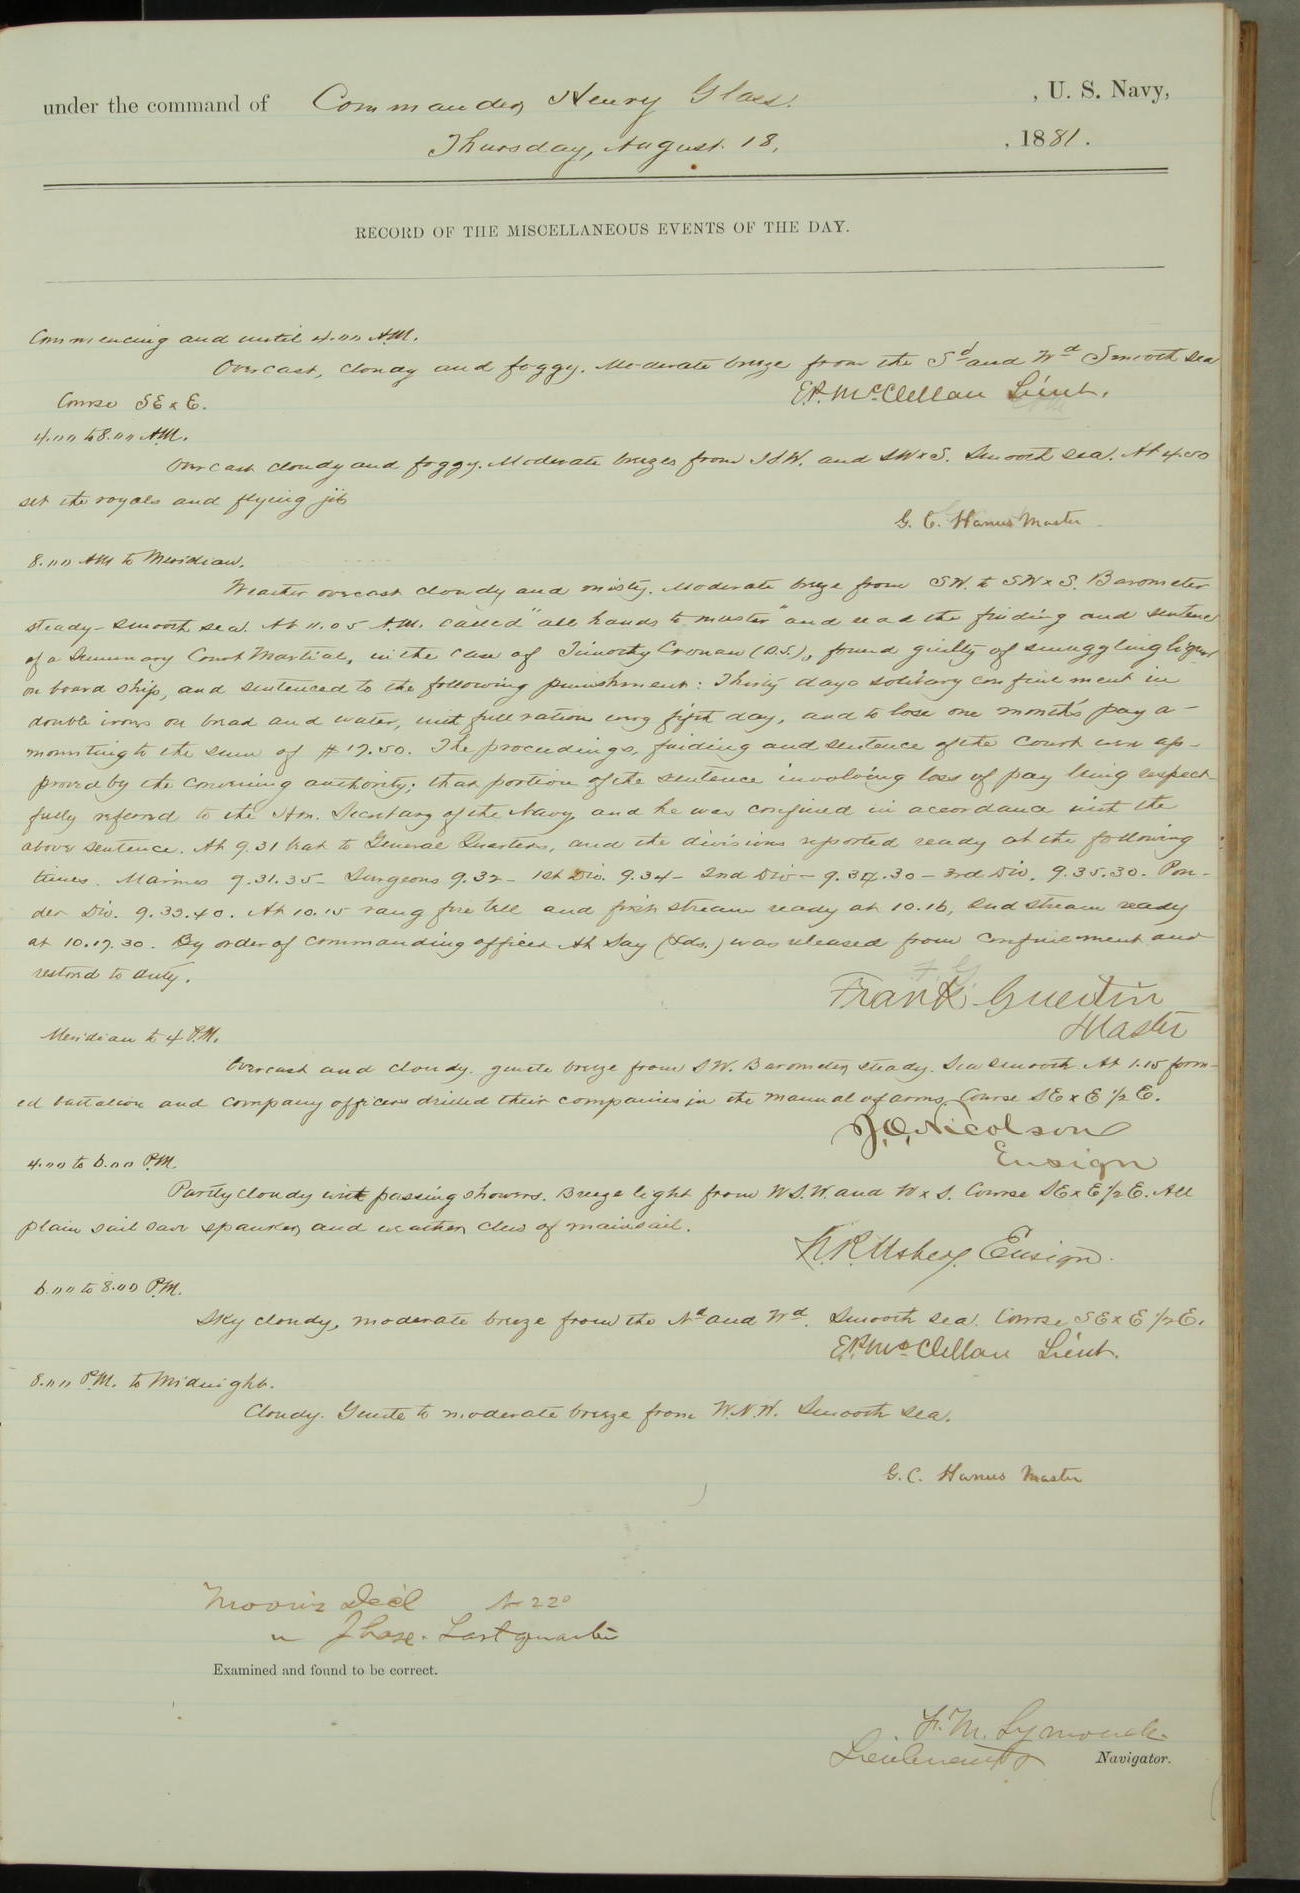 under the command of Commander Henry Glass. , U. S. Navy,
Thursday, August 18, , 1881.
RECORD OF THE MISCELLANEOUS EVENTS OF THE DAY.
Commencing and until 4.00 A.M.
Overcast, cloudy and foggy. Moderate breeze from the Sd and Wd Smooth sea
Course SE x E.
E.P. McClellan Lieut.
4.00 to 8.00 A.M.
Overcast cloudy and foggy. Moderate breezes from SSW. and SW x S. Smooth sea. At 4.50
set the royals and flying jib
G. C. Hanus Master
8.00 AM to Meridian.
Weather overcast cloudy and misty. Moderate breeze from SW. to SW x S. Barometer
steady - Smooth sea. At 11.05 A.M. called "all hands to muster" and read the finding and sentence
of a Summary Court Martial, in the case of Timothy Cronan (O.S.), found guilty of smuggling liquor
on board ship, and sentenced to the following punishment: Thirty days solitary confinement in
double irons on bread and water, with full ration every fifth day, and to lose one month's pay a-
mounting to the sum of $17.50. The proceedings, finding and sentence of the Court were ap-
proved by the convening authority; that portion of the sentence involving loss of pay being respect-
fully referred to the Hon. Secretary of the Navy, and he was confined in accordance with the
above sentence. At 9.31 beat to General Quarters, and the divisions reported ready at the following
times. Marines 9.31.35 - Surgeons 9.32 - 1st Div. 9.34 - 2nd Div - 9.34.30 - 3rd Div. 9.35.30. Pow-
der Div. 9.33.40. At 10.15 rang fire bell and first stream ready at 10.16, 2nd stream ready
at 10.17.30. By order of commanding officer Ah Say (Lds.) was released from confinement and
restored to duty.
Frank Guertin
Master
Meridian to 4 P.M.
Overcast and cloudy. gentle breeze from SW. Barometer steady. Sea smooth. At 1.15 form-
ed battalion and company officers drilled their companies in the manual of arms. Course SE x E 1/2 E.
J.O. Nicolson
Ensign
4.00 to 6.00 P.M.
Partly cloudy with passing showers. Breeze light from W.S.W. and W x S. Course SE x E 1/2 E. All
plain sail save spanker, and weather clew of mainsail.
N.R. Usher, Ensign.
6.00 to 8.00 P.M.
Sky cloudy, moderate breeze from the Nd and Wd. Smooth sea. Course SE x E 1/2 E.
E.P. McClellan Lieut.
8.00 P.M. to Midnight.
Cloudy. Gentle to moderate breeze from W.N.W. Smooth sea.
G. C. Hanus Master
Moon's Decl N 22°
" Phase. Last quarter
Examined and found to be correct.
F. M. Symonds
Lieutenant Navigator.